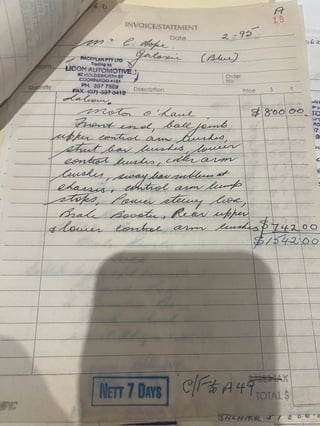 A
13
INVOICE/STATEMENT
Date 2-95
Mr C. Hope
Galaxie (Blue)
RACEPLAN PTY LTD
Trading as
LICON AUTOMOTIVE
COORPAROO 4151
PH. 397 7569
FAX. (07) 397 0412
Order
No.
Quantity Description Price $ ¢
Labour
Motor O'Haul $800.00
Front end, ball joints
upper control arm bushes,
strut bar bushes, lower
control bushes, idler arm
bushes, sway bar rubbers at
chassis, control arm bump
stops, Power steering hose,
Brake Booster, Rear upper
& lower control arm bushes $742.00
$1542.00
NETT 7 DAYS
C/F to A49
SALES TAX
TOTAL $